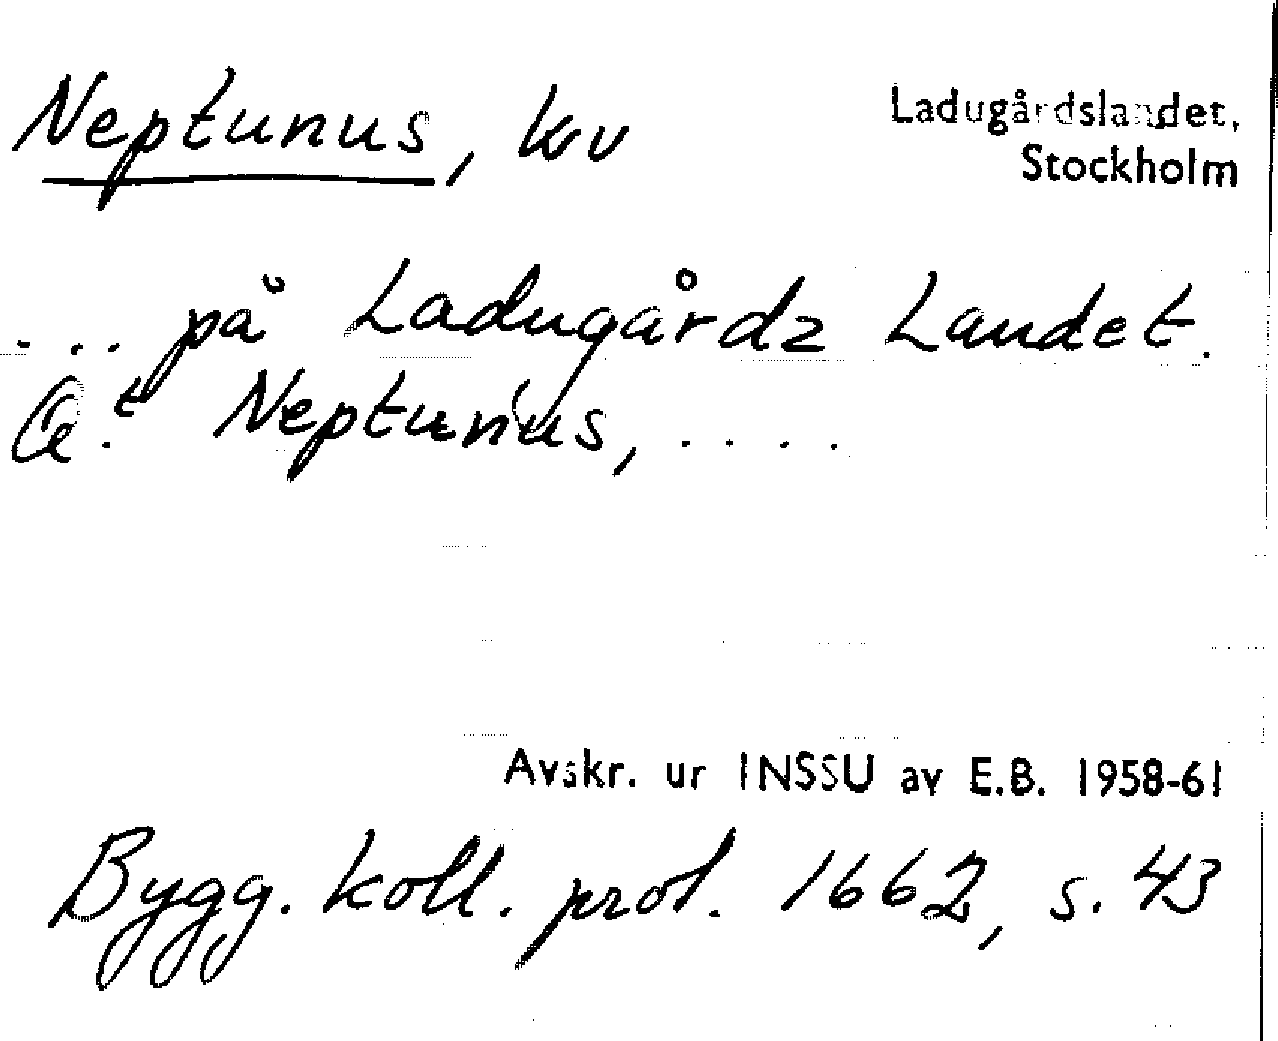 Neptunus, kv
Ladugårdslandet,
Stockholm
... på Ladugårdz Landet.
Q.t Neptunus, ....
Avskr. ur INSSU av E.B. 1958-61
Bygg. koll. prot. 1662, s. 43